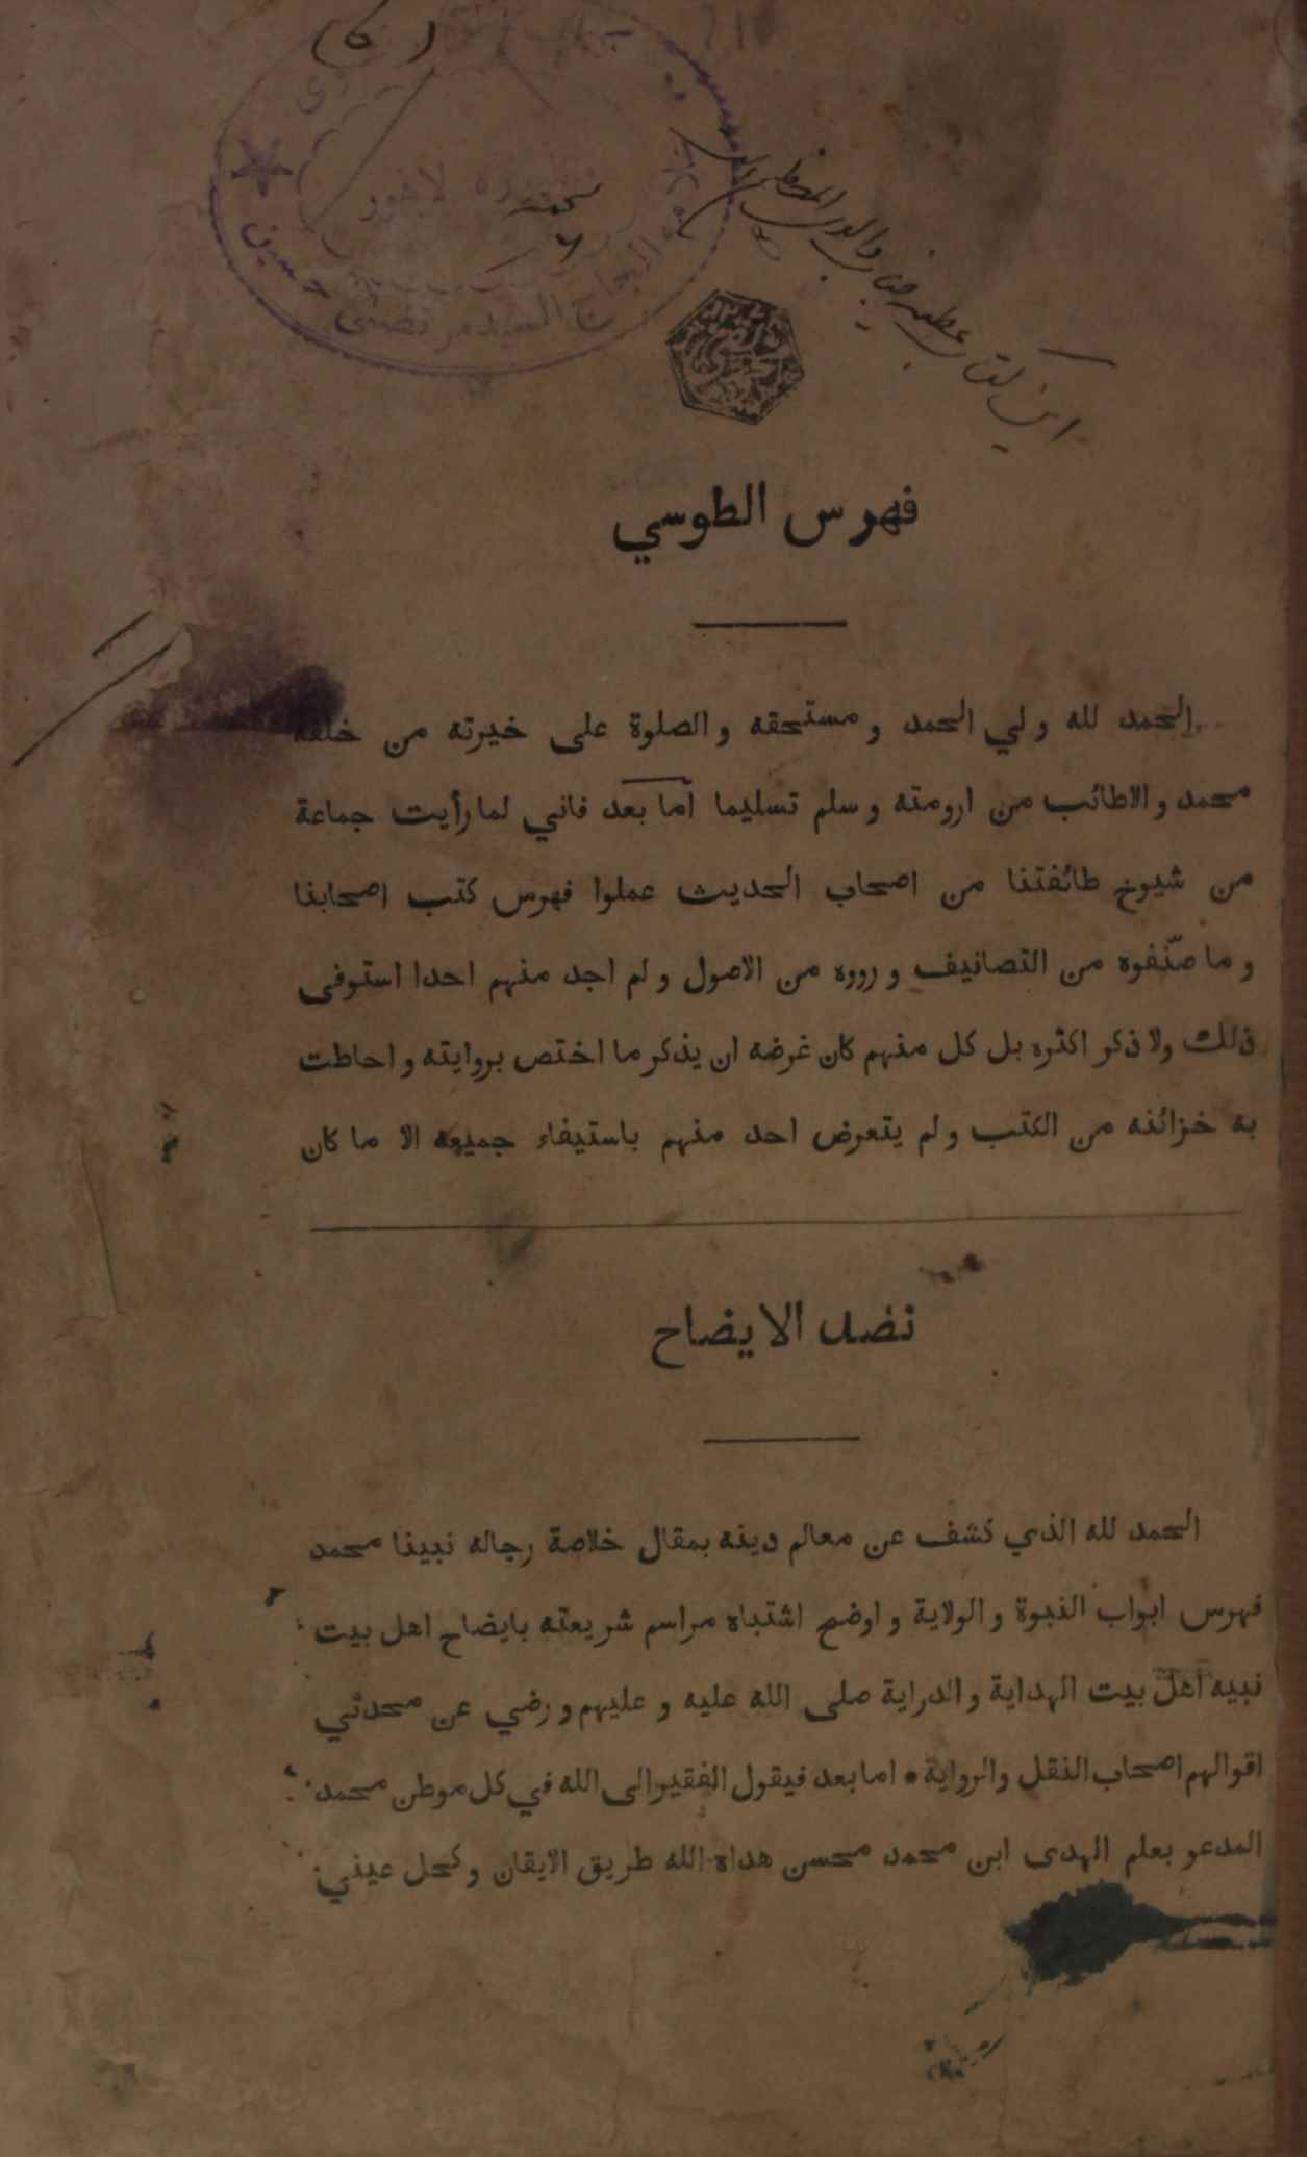 (۵)
حسین
الحاج السید مرتضی
لاهور
این کتاب
فهرس الطوسي
الحمد لله ولي الحمد و مستحقه والصلوة على خيرته من خلقه
محمد والاطائب من ارومته و سلم تسليما اما بعد فاني لما رأيت جماعة
من شيوخ طائفتنا من اصحاب الحديث عملوا فهرس كتب اصحابنا
و ما صنّفوه من التصانيف و رووه من الاصول و لم اجد منهم احدا استوفى
ذلك ولا ذكر اكثره بل كل منهم كان غرضه ان يذكر ما اختص بروايته و احاطت
به خزائنه من الكتب و لم يتعرض احد منهم باستيفاء جميعه الا ما كان
نضد الايضاح
الحمد لله الذي كشف عن معالم دينه بمقال خلاصة رجاله نبينا محمد
فهرس ابواب النبوة و الولاية و اوضح اشتباه مراسم شريعته بايضاح اهل بيت
نبيه اهل بيت الهداية و الدراية صلى الله عليه و عليهم و رضي عن محدثي
اقوالهم اصحاب النقل والرواية • اما بعد فيقول الفقير الى الله في كل موطن محمد
المدعو بعلم الهدى ابن محمد محسن هداه الله طريق الايقان و كحل عيني